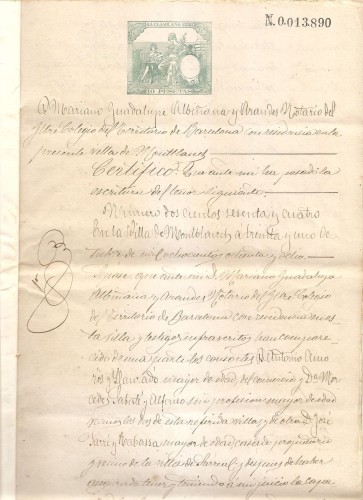 N.0.013.890
10 PESETAS
D. Mariano Guadalupe Albiñana y Arandes Notario del
Iltre Colegio del Territorio de Barcelona con residencia en la
presente villa de Montblanch
Certifico: Que ante mi ha pasado la
escritura del tenor siguiente.
Número dos cientos sesenta y cuatro
En la Villa de Montblanch a treinta y uno de
mil ochocientos ochenta y ocho.
que ante mi D. Mariano Guadalupe
Albiñana y Arandes Notario del Iltre Colegio
del Territorio de Barcelona con residencia en es
ta villa y testigos infrascritos han compare
cido de una parte los consortes D. Antonio Amo
rós y mayor de edad, del comercio y Da Mer
cedes y Alfonso sin profesion mayor de edad
vecinos los dos de esta referida villa; y de otra D. José
y mayor de edad casado propietario
vecino de la villa de Sarreal; y despues de haber
asegurado tener y teniendo a mi juicio la capa